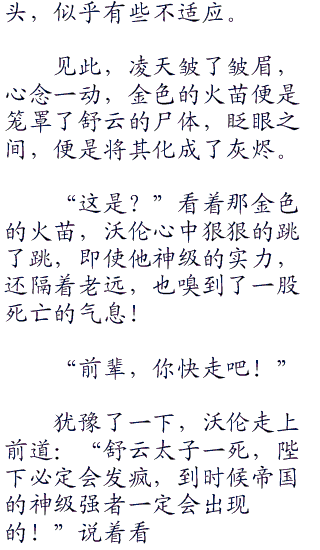 头，似乎有些不适应。
见此，凌天皱了皱眉，
心念一动，金色的火苗便是
笼罩了舒云的尸体，眨眼之
间，便是将其化成了灰烬。
“这是？”看着那金色
的火苗，沃伦心中狠狠的跳
了跳，即使他神级的实力，
还隔着老远，也嗅到了一股
死亡的气息！
“前辈，你快走吧！”
犹豫了一下，沃伦走上
前道：“舒云太子一死，陛
下必定会发疯，到时候帝国
的神级强者一定会出现
的！”说着看